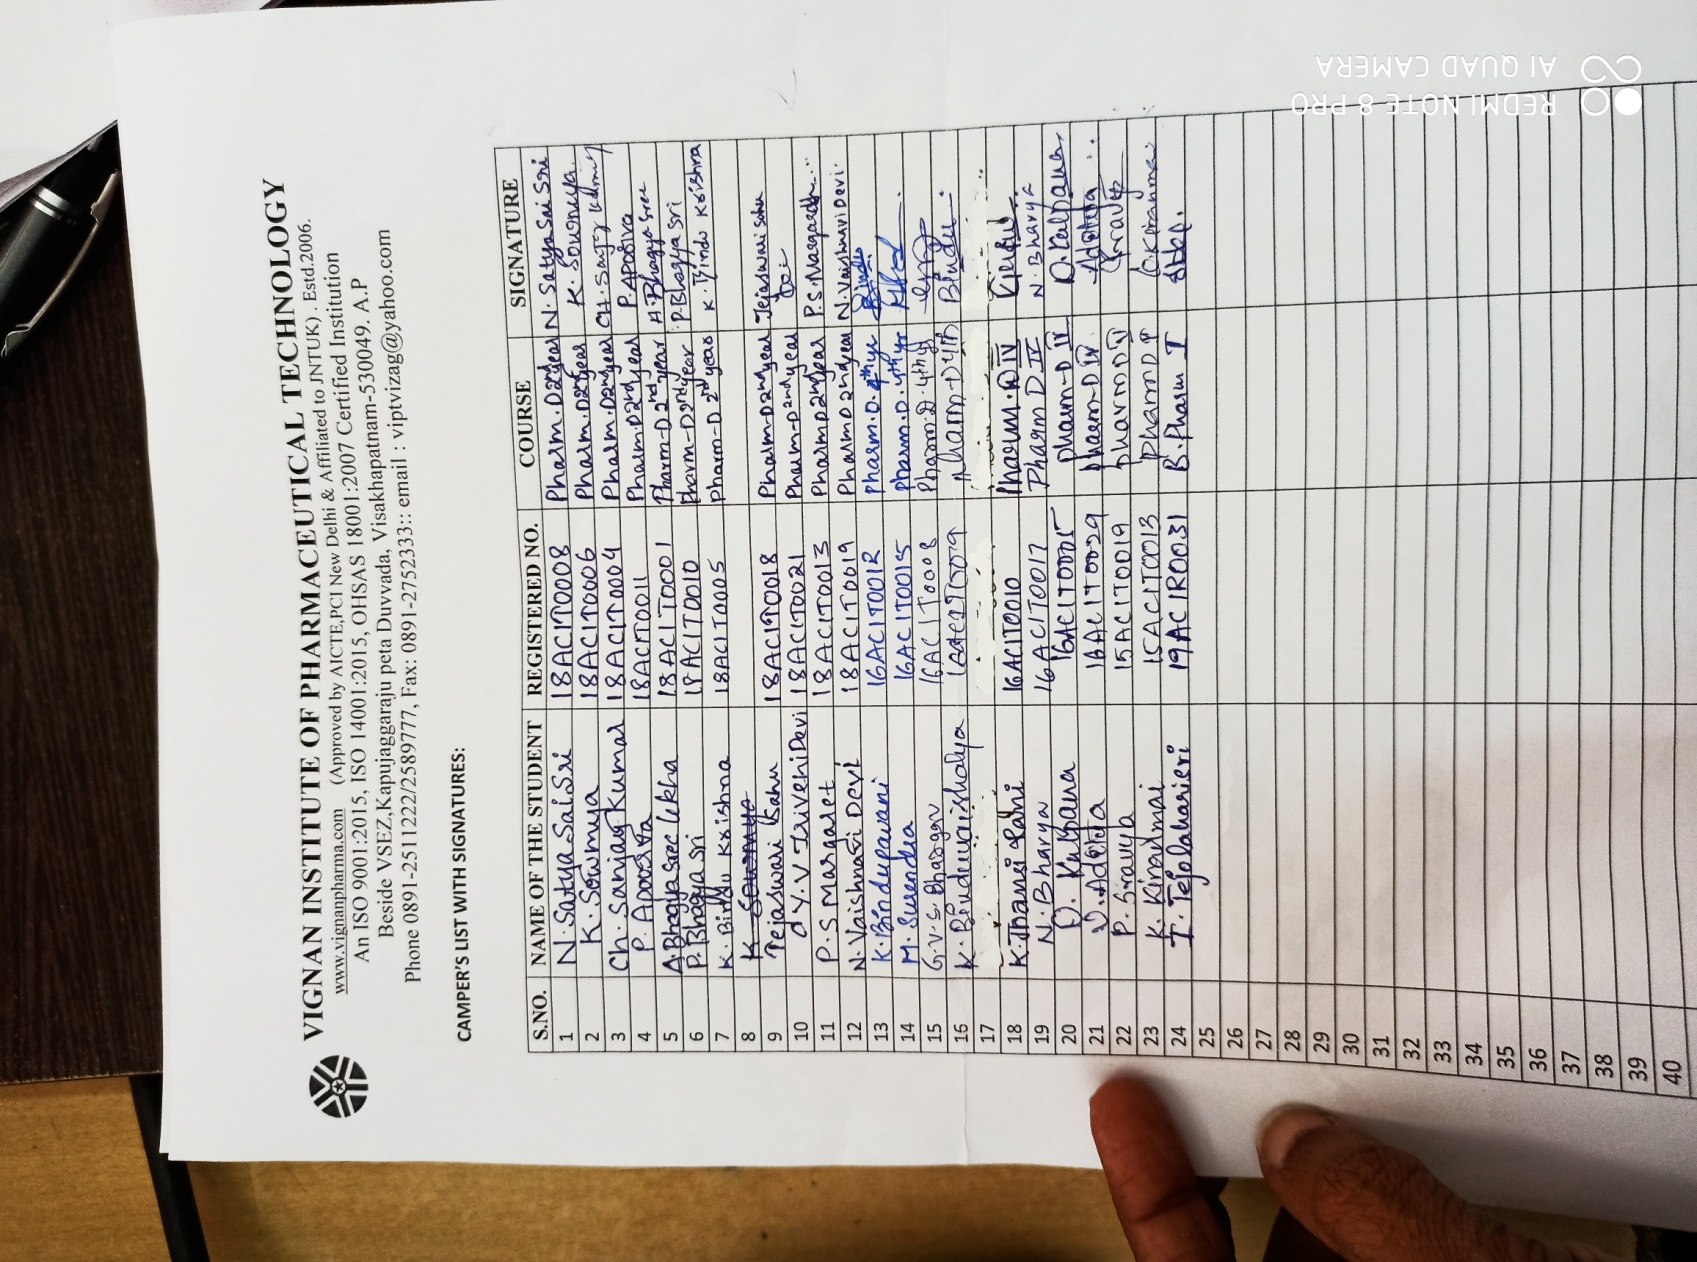 VIGNAN INSTITUTE OF PHARMACEUTICAL TECHNOLOGY
www.vignanpharma.com (Approved by AICTE,PCI New Delhi & Affiliated to JNTUK) . Estd.2006.
An ISO 9001:2015, ISO 14001:2015, OHSAS 18001:2007 Certified Institution
Beside VSEZ,Kapujaggaraju peta Duvvada, Visakhapatnam-530049. A.P
Phone 0891-2511222/2589777, Fax: 0891-2752333:: email : viptvizag@yahoo.com
CAMPER'S LIST WITH SIGNATURES:
S.NO. NAME OF THE STUDENT REGISTERED NO. COURSE SIGNATURE
1 N. Satya Sai Sri 18AC1T0008 Pharm.D 2nd year N. Satya Sai Sri
2 K. Sowmya 18AC1T0006 Pharm.D 2nd year K. Sowmya
3 Ch. Sanjay Kumar 18AC1T0004 Pharm.D 2nd year
4 P. Apoorva 18AC1T0011 Pharm.D 2nd year
5 A. Bhagya Sree Lekha 18AC1T0001 Pharm-D 2nd year A. Bhagya Sree
6 P. Bhagya Sri 18AC1T0010 Pharm-D 2nd year P. Bhagya Sri
7 K. Bindu Krishna 18AC1T0005 Pharm-D 2nd year K. Bindu Krishna
8 K Sowmya
9 Tejaswari Sahu 18AC1T0018 Pharm-D 2nd year Tejaswari Sahu
10 D Y. V Triveni Devi 18AC1T0021 Pharm-D 2nd year
11 P. S Margaret 18AC1T0013 Pharm D 2nd year
12 N. Vaishnavi Devi 18AC1T0019 Pharm D 2nd year N. Vaishnavi Devi
13 K. Bindupavani 16AC1T0012 Pharm.D.4th yr Bindu
14 M. Surendra 16AC1T0015 Pharm.D.4th yr
15 G.V.S. Bhargav 16AC1T0008 Pharm.D.4th yr
16 K. Binduvaishalya Pharm-D 4th Bindu
17
18 K. Jhansi Rani 16AC1T0010 Pharm.D IV
19 N. Bharya 16AC1T0017 Pharm D IV N. Bharya
20 D. Kalyana 16AC1T0005 pharm-D IV D. Kalyana
21 16AC1T0029 pharm-D IV
22 P. Sravya 15AC1T0019 pharm D V Sravya
23 K. Kiranmai 15AC1T0013 Pharm D V
24 19AC1R0031 B. Pharm I
25
26
27
28
29
30
31
32
33
34
35
36
37
38
39
40
REDMI NOTE 8 PRO
AI QUAD CAMERA